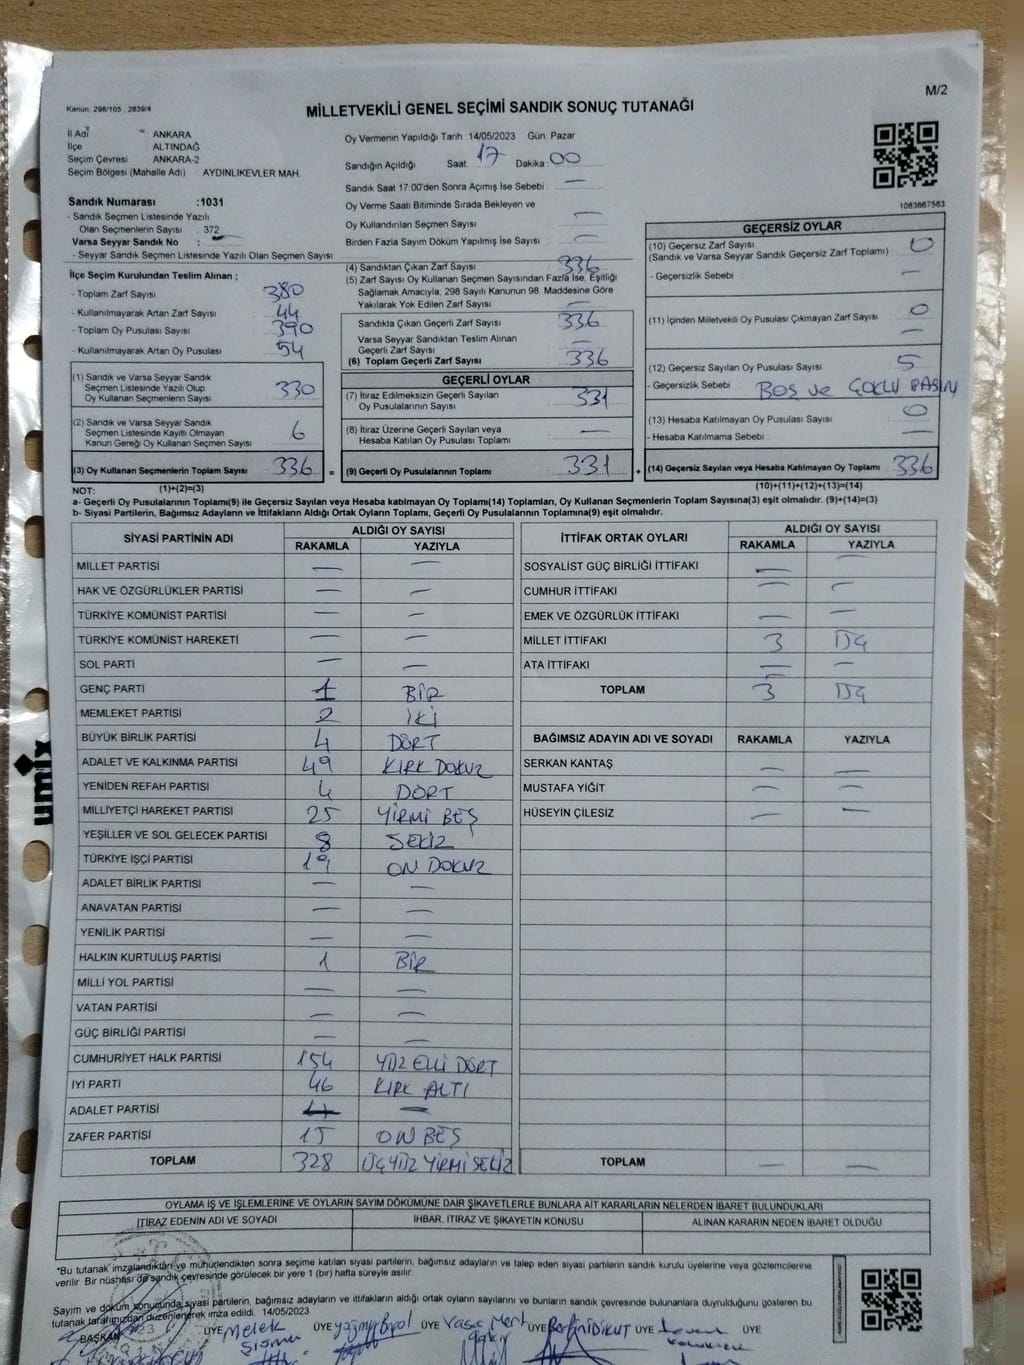 M/2
Kanun, 298/105 , 2839/4
MİLLETVEKİLİ GENEL SEÇİMİ SANDIK SONUÇ TUTANAĞI
İl Adı : ANKARA
İlçe : ALTINDAĞ
Seçim Çevresi : ANKARA-2
Seçim Bölgesi (Mahalle Adı) : AYDINLIKEVLER MAH.
Sandık Numarası :1031
- Sandık Seçmen Listesinde Yazılı
Olan Seçmenlerin Sayısı : 372
Varsa Seyyar Sandık No : —
- Seyyar Sandık Seçmen Listesinde Yazılı Olan Seçmen Sayısı:
İlçe Seçim Kurulundan Teslim Alınan ;
- Toplam Zarf Sayısı 380
- Kullanılmayarak Artan Zarf Sayısı : 44
- Toplam Oy Pusulası Sayısı : 390
- Kullanılmayarak Artan Oy Pusulası : 54
(1) Sandık ve Varsa Seyyar Sandık
Seçmen Listesinde Yazılı Olup
Oy Kullanan Seçmenlerin Sayısı 330
(2) Sandık ve Varsa Seyyar Sandık
Seçmen Listesinde Kayıtlı Olmayan
Kanun Gereği Oy Kullanan Seçmen Sayısı 6
(3) Oy Kullanan Seçmenlerin Toplam Sayısı 336 =
Oy Vermenin Yapıldığı Tarih :14/05/2023 Gün: Pazar
Sandığın Açıldığı Saat: 17 Dakika: 00
Sandık Saat 17:00'den Sonra Açımış İse Sebebi : —
Oy Verme Saati Bitiminde Sırada Bekleyen ve
Oy Kullandırılan Seçmen Sayısı : —
Birden Fazla Sayım Döküm Yapılmış İse Sayısı : —
(4) Sandıktan Çıkan Zarf Sayısı 336
(5) Zarf Sayısı Oy Kullanan Seçmen Sayısından Fazla İse, Eşitliği
Sağlamak Amacıyla; 298 Sayılı Kanunun 98. Maddesine Göre
Yakılarak Yok Edilen Zarf Sayısı —
Sandıkta Çıkan Geçerli Zarf Sayısı : 336
Varsa Seyyar Sandıktan Teslim Alınan
Geçerli Zarf Sayısı —
(6) Toplam Geçerli Zarf Sayısı : 336
GEÇERLİ OYLAR
(7) İtiraz Edilmeksizin Geçerli Sayılan
Oy Pusulalarının Sayısı 331
(8) İtiraz Üzerine Geçerli Sayılan veya
Hesaba Katılan Oy Pusulası Toplamı —
(9) Geçerli Oy Pusulalarının Toplamı : 331 +
1083667583
GEÇERSİZ OYLAR
(10) Geçersiz Zarf Sayısı : 0
(Sandık ve Varsa Seyyar Sandık Geçersiz Zarf Toplamı)
- Geçersizlik Sebebi : —
(11) İçinden Milletvekili Oy Pusulası Çıkmayan Zarf Sayısı : 0
—
(12) Geçersiz Sayılan Oy Pusulası Sayısı : 5
- Geçersizlik Sebebi : BOŞ ve ÇOKLU BASIM
(13) Hesaba Katılmayan Oy Pusulası Sayısı : 0
- Hesaba Katılmama Sebebi : —
(14) Geçersiz Sayılan veya Hesaba Katılmayan Oy Toplamı 336
(10)+(11)+(12)+(13)=(14)
NOT: (1)+(2)=(3)
a- Geçerli Oy Pusulaları Toplamı(9) ile Geçersiz Sayılan veya Hesaba katılmayan Oy Toplamı(14) Toplamları, Oy Kullanan Seçmenlerin Toplam Sayısına(3) eşit olmalıdır. (9)+(14)=(3)
b- Siyasi Partilerin, Bağımsız Adayların ve İttifakların Aldığı Ortak Oyların Toplamı, Geçerli Oy Pusulalarının Toplamına(9) eşit olmalıdır.
SİYASİ PARTİNİN ADI ALDIĞI OY SAYISI
RAKAMLA YAZIYLA
MİLLET PARTİSİ — —
HAK VE ÖZGÜRLÜKLER PARTİSİ — —
TÜRKİYE KOMÜNİST PARTİSİ — —
TÜRKİYE KOMÜNİST HAREKETİ — —
SOL PARTİ — —
GENÇ PARTİ 1 BİR
MEMLEKET PARTİSİ 2 İKİ
BÜYÜK BİRLİK PARTİSİ 4 DÖRT
ADALET VE KALKINMA PARTİSİ 49 KIRK DOKUZ
YENİDEN REFAH PARTİSİ 4 DÖRT
MİLLİYETÇİ HAREKET PARTİSİ 25 YİRMİ BEŞ
YEŞİLLER VE SOL GELECEK PARTİSİ 8 SEKİZ
TÜRKİYE İŞÇİ PARTİSİ 19 ON DOKUZ
ADALET BİRLİK PARTİSİ — —
ANAVATAN PARTİSİ — —
YENİLİK PARTİSİ — —
HALKIN KURTULUŞ PARTİSİ 1 BİR
MİLLİ YOL PARTİSİ — —
VATAN PARTİSİ — —
GÜÇ BİRLİĞİ PARTİSİ — —
CUMHURİYET HALK PARTİSİ 154 YÜZ ELLİ DÖRT
İYİ PARTİ 46 KIRK ALTI
ADALET PARTİSİ — —
ZAFER PARTİSİ 15 ON BEŞ
TOPLAM 328 ÜÇYÜZ YİRMİ SEKİZ
İTTİFAK ORTAK OYLARI ALDIĞI OY SAYISI
RAKAMLA YAZIYLA
SOSYALİST GÜÇ BİRLİĞİ İTTİFAKI — —
CUMHUR İTTİFAKI — —
EMEK VE ÖZGÜRLÜK İTTİFAKI — —
MİLLET İTTİFAKI 3 ÜÇ
ATA İTTİFAKI — —
TOPLAM 3 ÜÇ
BAĞIMSIZ ADAYIN ADI VE SOYADI RAKAMLA YAZIYLA
SERKAN KANTAŞ — —
MUSTAFA YİĞİT — —
HÜSEYİN ÇİLESİZ — —
TOPLAM — —
OYLAMA İŞ VE İŞLEMLERİNE VE OYLARIN SAYIM DÖKÜMÜNE DAİR ŞİKAYETLERLE BUNLARA AİT KARARLARIN NELERDEN İBARET BULUNDUKLARI
İTİRAZ EDENİN ADI VE SOYADI İHBAR, İTİRAZ VE ŞİKAYETİN KONUSU ALINAN KARARIN NEDEN İBARET OLDUĞU
"Bu tutanak imzalandıktan ve mühürlendikten sonra seçime katılan siyasi partilerin, bağımsız adayların ve talep eden siyasi partilerin sandık kurulu üyelerine veya gözlemcilerine
verilir. Bir nüshası da sandık çevresinde görülecek bir yere 1 (bir) hafta süreyle asılır.
Sayım ve döküm sonucunda siyasi partilerin, bağımsız adayların ve ittifakların aldığı ortak oyların sayılarını ve bunların sandık çevresinde bulunanlara duyrulduğunu gösteren bu
tutanak tarafımızdan düzenlenerek imza edildi. 14/05/2023
BAŞKAN ÜYE Melek ÜYE ÜYE ÜYE ÜYE ÜYE
umix